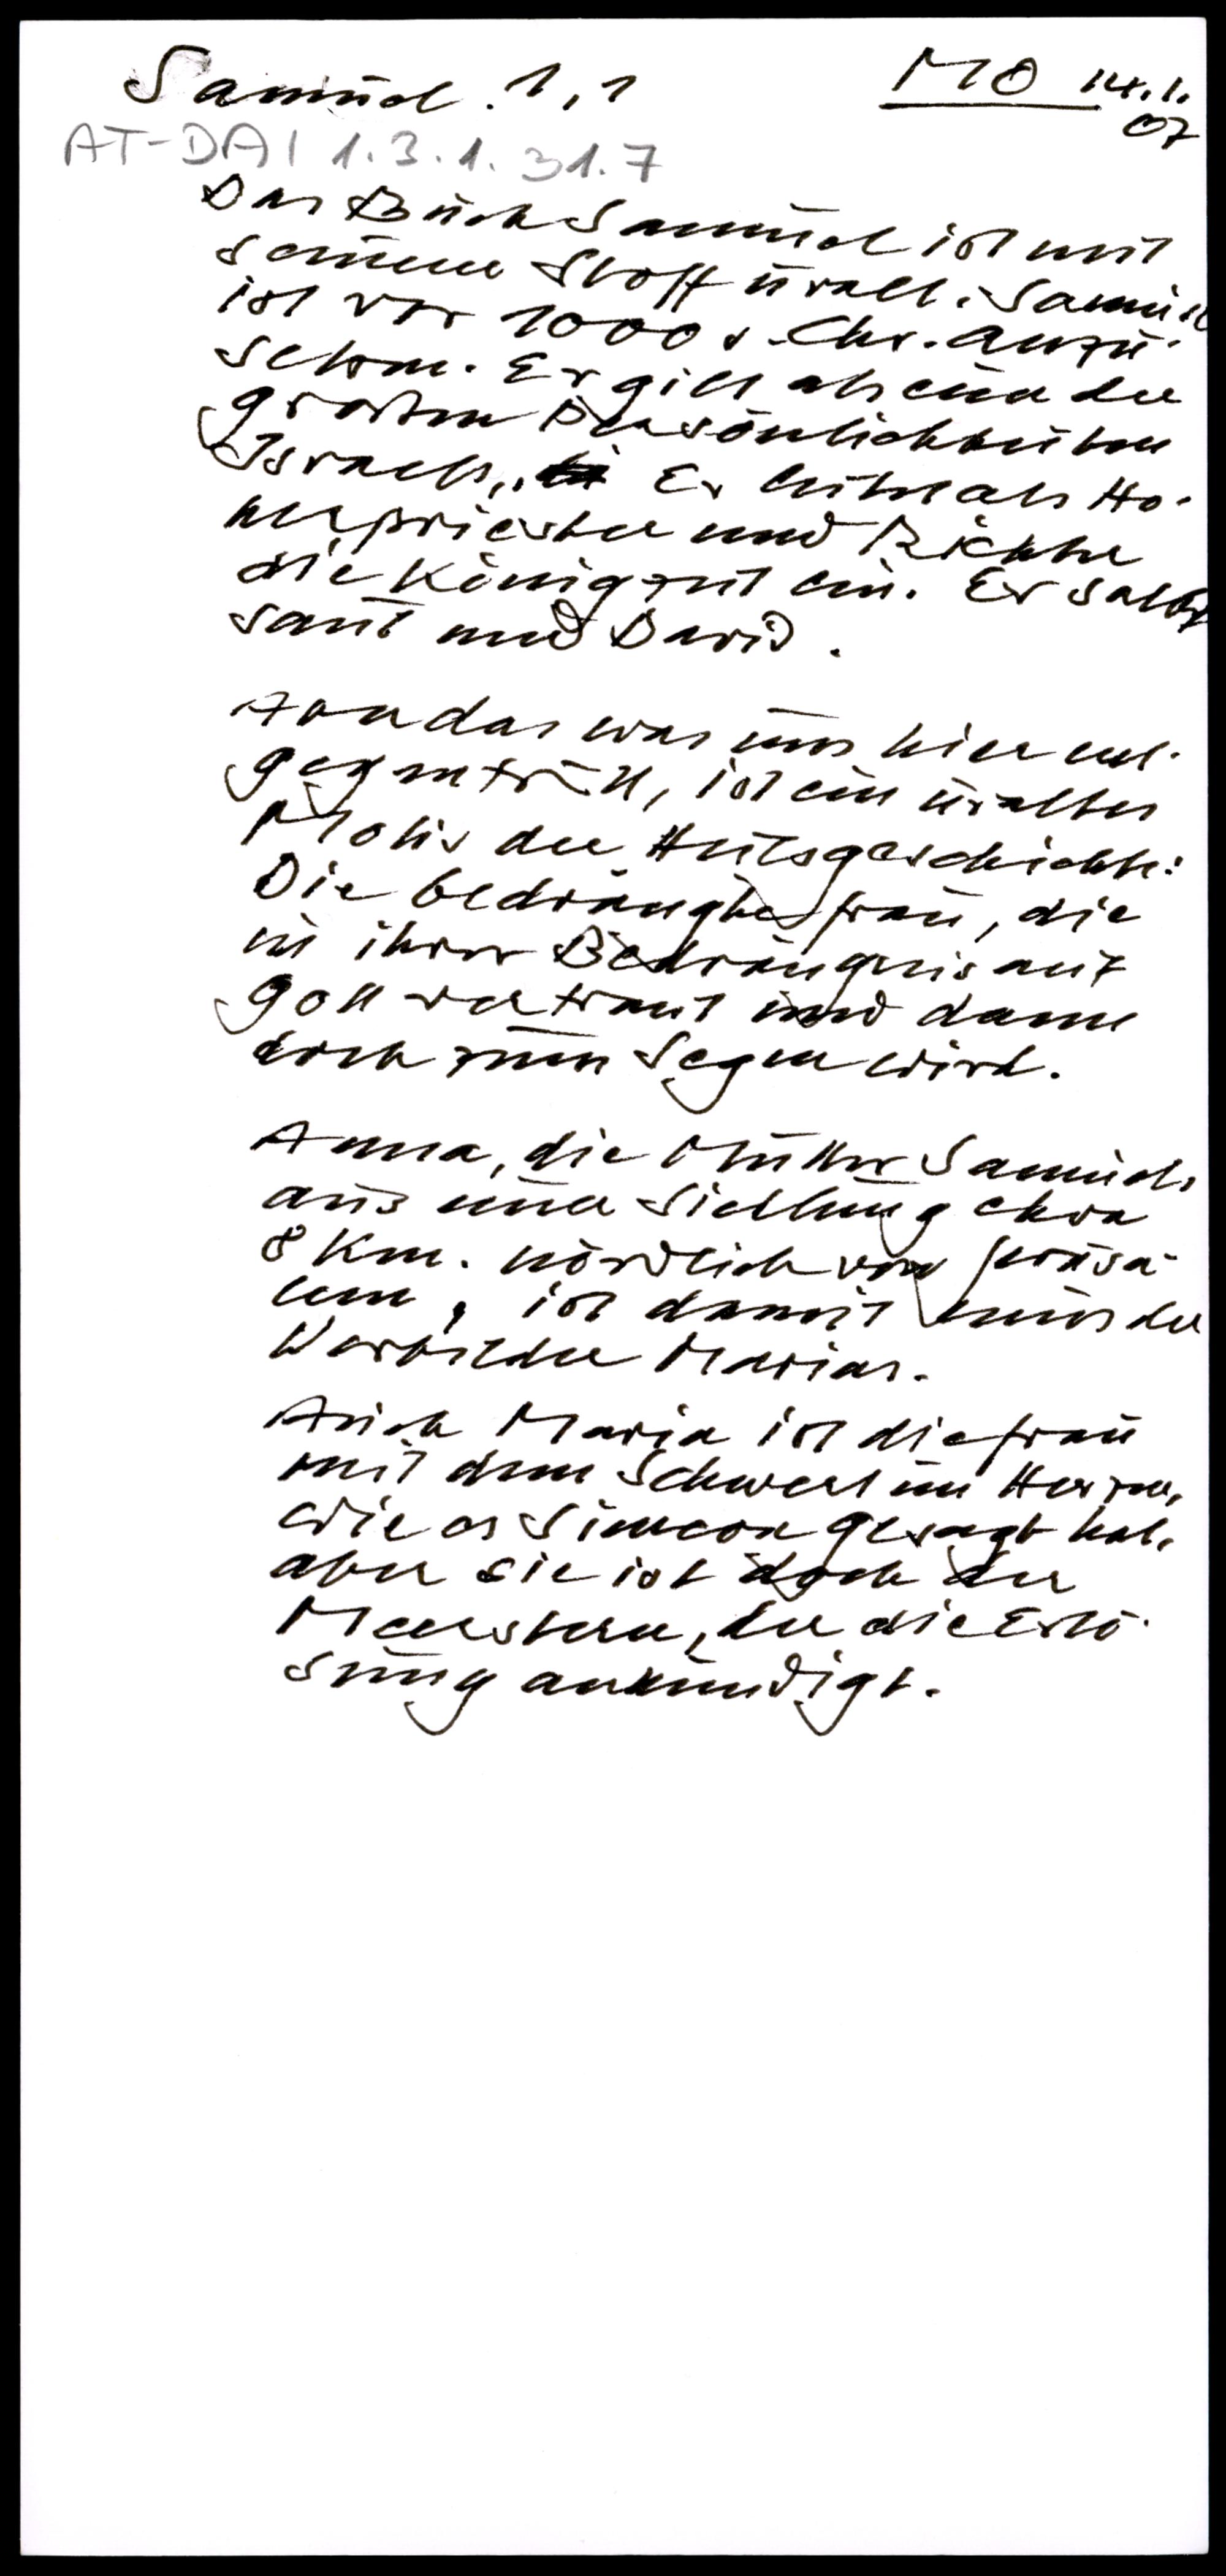 Samuel. 1,1
MO 14.1.
07
AT-DAI 1.3.1.31.7
Das Buch Samuel ist mit
seinem Stoff uralt. Samuel
ist vor 1000 v. Chr. anzu-
setzen. Er gilt als eine der
großen Persönlichkeiten
Israels. Er leitet als Ho-
herpriester und Richter
die Königszeit ein. Er salbt
Saul und David.
das was uns hier ent-
gegentritt, ist ein uraltes
Motiv der Heilsgeschichte:
Die bedrängte Frau, die
in ihrer Bedrängnis auf
Gott vertraut und dann
doch zum Segen wird.
Anna, die Mutter Samuels
aus einer Siedlung etwa
8 Km. nördlich von Jerusa-
lem, ist damit eines der
Vorbilder Marias.
Auch Maria ist die Frau
mit dem Schwert im Herzen,
wie es Simeon gesagt hat,
aber sie ist doch der
Meerstern, der die Erlö-
sung ankündigt.